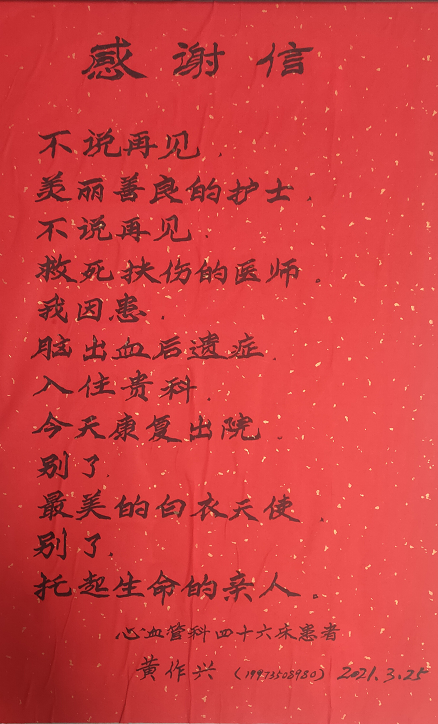 感谢信
不说再见.
美丽善良的护士.
不说再见.
救死扶伤的医师。
我因患.
脑出血后遗症.
入住贵科.
今天康复出院.
别了.
最美的白衣天使.
别了.
托起生命的亲人。
心血管科四十六床患者
黄作兴(19473508980) 2021.3.25